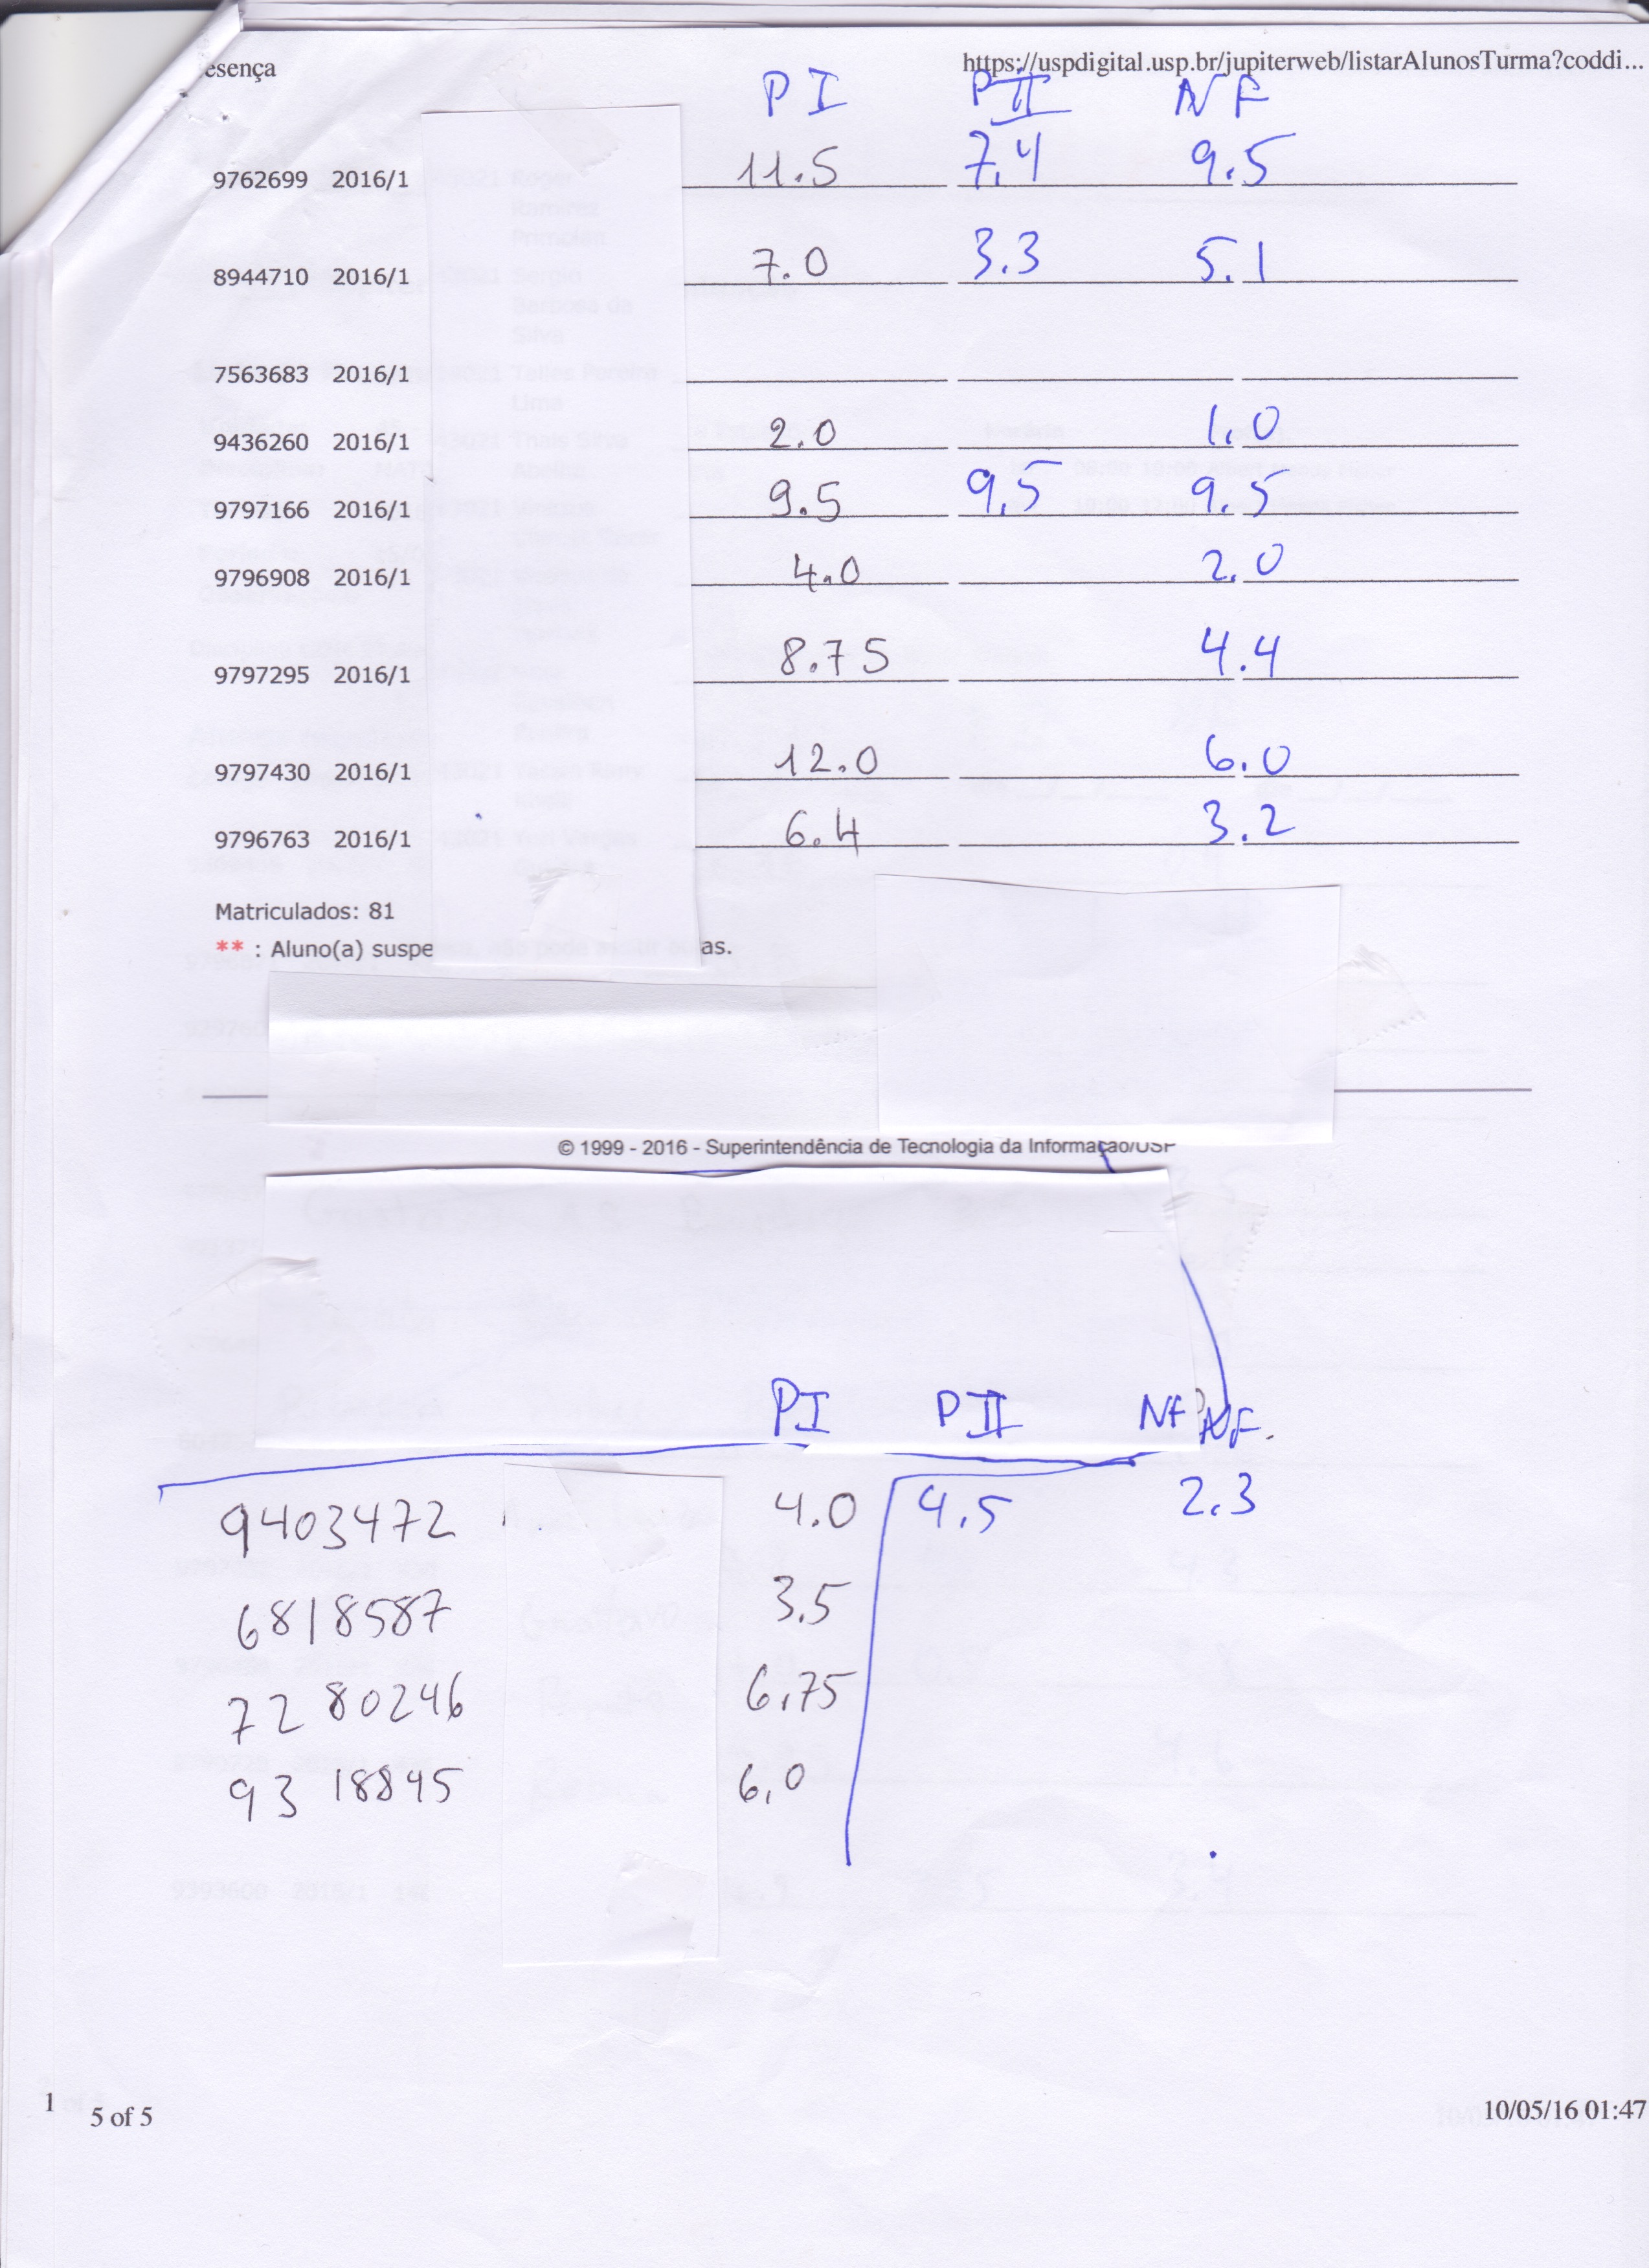 esença https://uspdigital.usp.br/jupiterweb/listarAlunosTurma?coddi...
PI PII NF
9762699 2016/1 11.5 7.4 9.5
8944710 2016/1 7.0 3.3 5.1
7563683 2016/1
9436260 2016/1 2.0 1.0
9797166 2016/1 9.5 9.5 9.5
9796908 2016/1 4.0 2.0
9797295 2016/1 8.75 4.4
9797430 2016/1 12.0 6.0
9796763 2016/1 6.4 3.2
Matriculados: 81
** : Aluno(a) suspe as.
© 1999 - 2016 - Superintendência de Tecnologia da Informação/USP
PI PII NF NF.
9403472 4.0 4.5 2.3
6818587 3.5
7280246 6,75
9318845 6,0
1
5 of 5 10/05/16 01:47